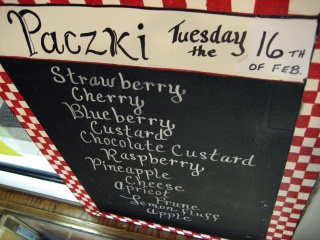 Paczki Tuesday the 16TH OF FEB.
Strawberry,
Cherry
Blueberry,
Custard
Chocolate Custard
Raspberry,
Pineapple
Cheese
Apricot
Prune
Lemon, Fluff
Apple